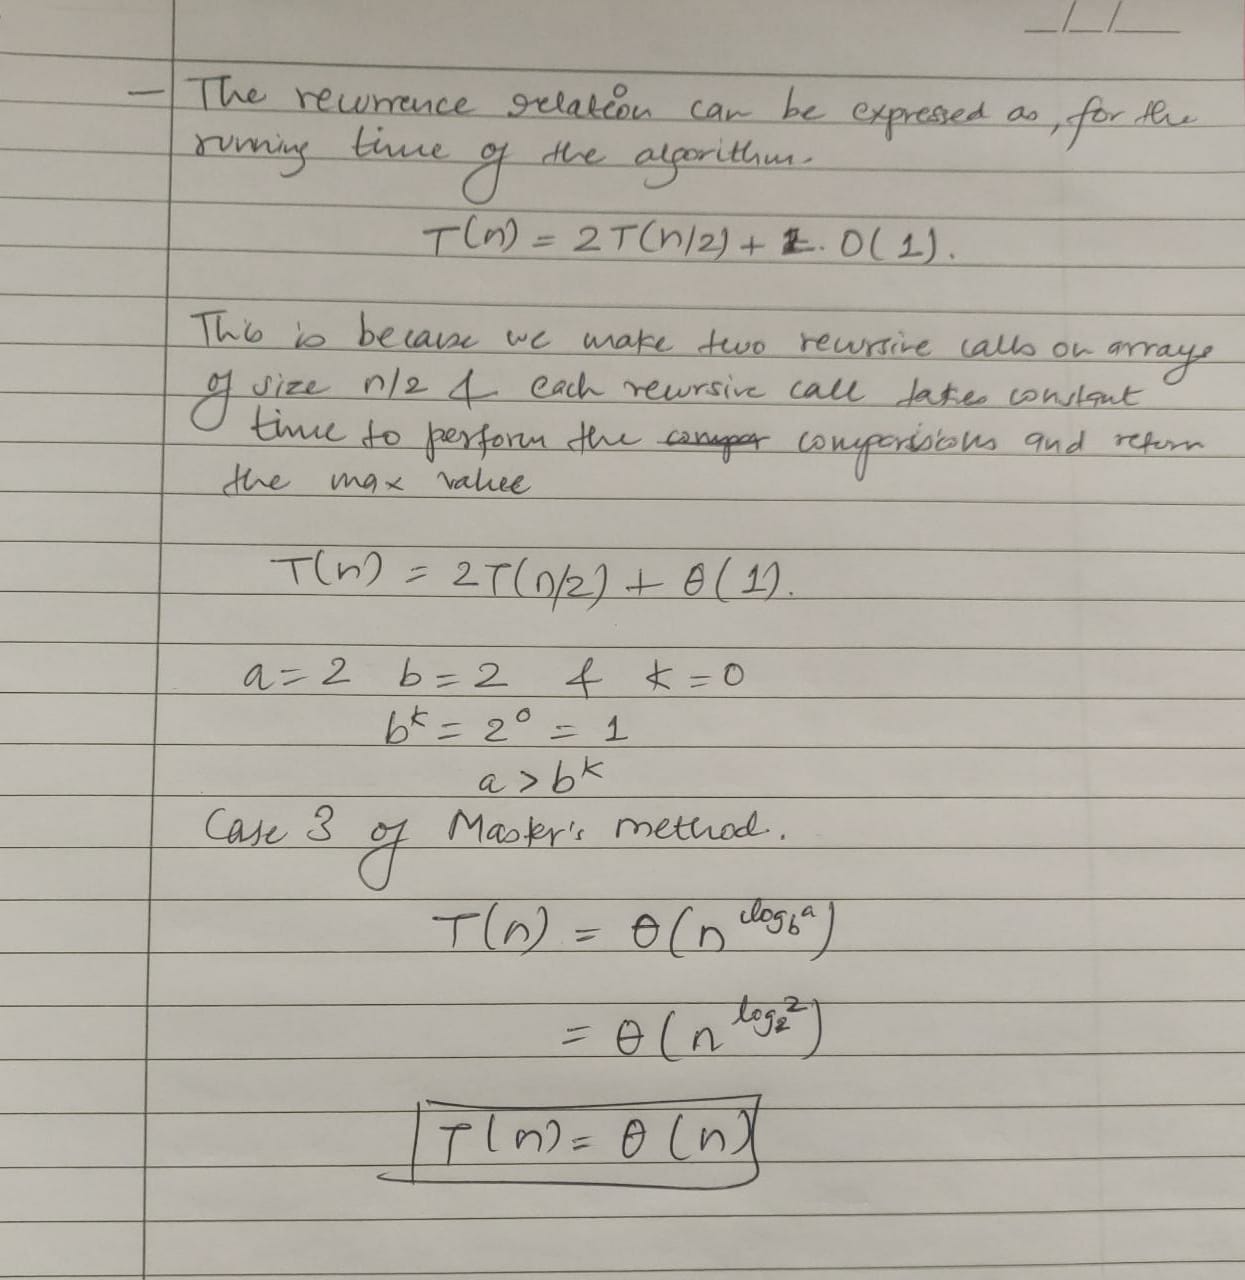 _/_/_
- The recurrence relation can be expressed as, for the
running time of the algorithm.
T(n) = 2T(n/2) + O(1).
This is because we make two recursive calls on arrays
of size n/2 & each recursive call takes constant
time to perform the comparisions and return
the max value
T(n) = 2T(n/2) + θ(1).
a = 2 b = 2 & k = 0
b^k = 2^0 = 1
a > b^k
Case 3 of Master's method.
T(n) = θ(n^log_b a)
= θ(n^log_2 2)
T(n) = θ(n)